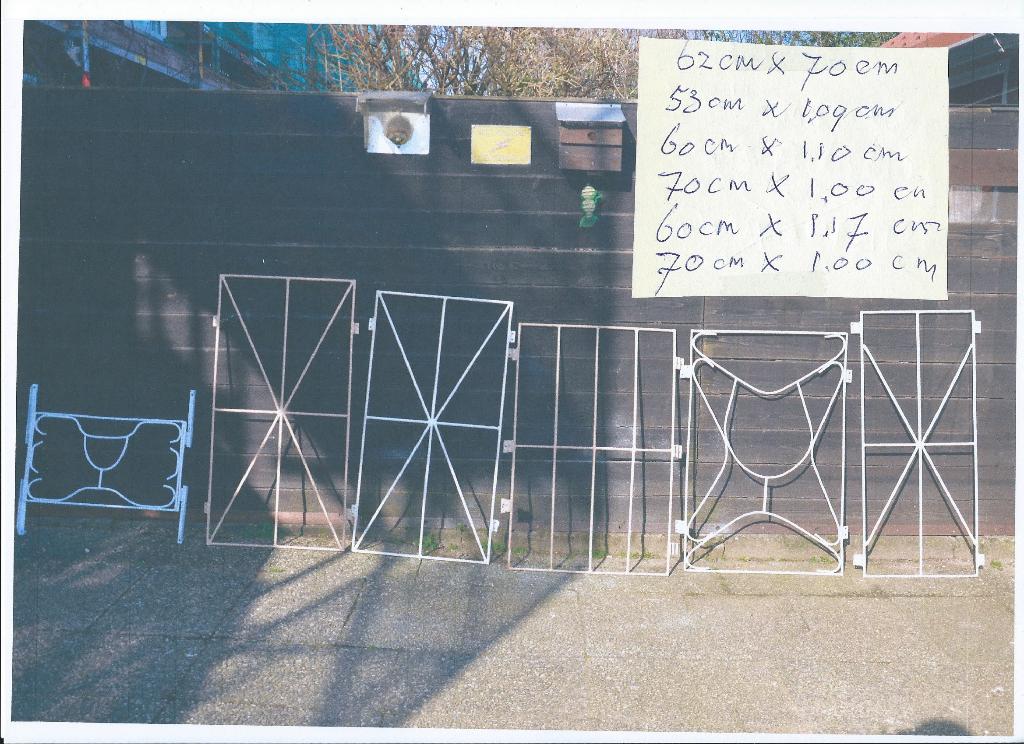 62cm x 70cm
53cm x 1,09cm
60cm x 1.10 cm
70cm x 1.00 cm
60cm x 1.17 cm
70cm x 1.00 cm